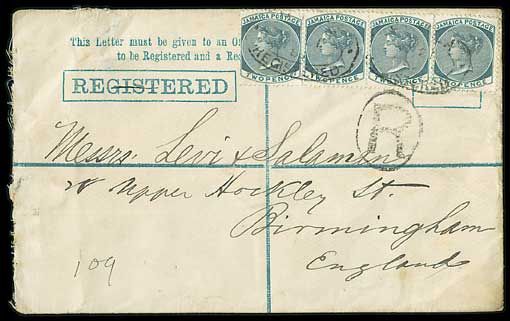 This Letter must be given to an Of
to be Registered and a Rec
JAMAICA POSTAGE JAMAICA POSTAGE JAMAICA POSTAGE JAMAICA POSTAGE
TWO PENCE TWO PENCE TWO PENCE TWO PENCE
REGISTERED
REGISTERED
R
Messrs. Levi & Salaman
Upper Hockley St.
Birmingham
England
109